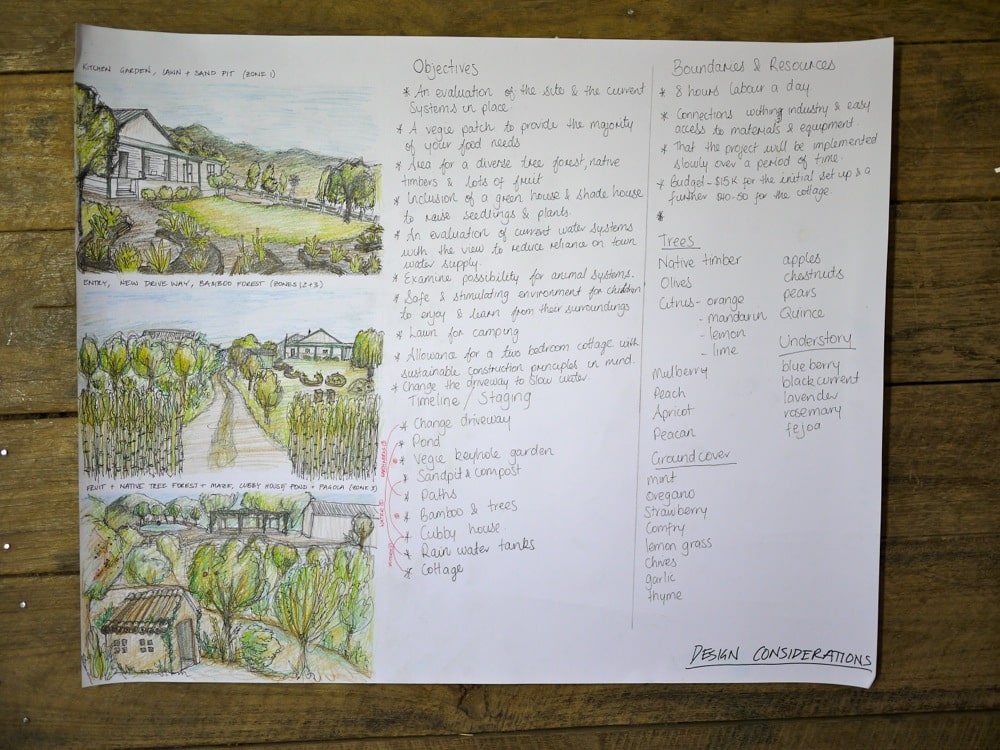 KITCHEN GARDEN, LAWN + SAND PIT (ZONE 1)
ENTRY, NEW DRIVE WAY, BAMBOO FOREST (ZONES 1, 2 + 3)
FRUIT + NATIVE TREE FOREST + MAZE, CUBBY HOUSE, POND + PAGOLA (ZONE 3)
Objectives
* An evaluation of the site & the current
systems in place.
* A vegie patch to provide the majority
of your food needs
* Area for a diverse tree forest, native
timbers & lots of fruit
* Inclusion of a green house & shade house
to raise seedlings & plants.
* An evaluation of current water systems
with the view to reduce reliance on town
water supply.
* Examine possibility for animal systems.
* Safe & stimulating environment for children
to enjoy & learn from their surroundings
* Lawn for camping
* Allowance for a two bedroom cottage with
sustainable construction principles in mind.
* Change the driveway to slow water.
Timeline / Staging
* Change driveway
* Pond
* Vegie keyhole garden
* Sandpit & compost
* Paths
* Bamboo & trees
* Cubby house.
* Rain water tanks
* Cottage
Boundaries & Resources
* 8 hours labour a day
* Connections withing industry & easy
access to materials & equipment.
* That the project will be implemented
slowly over a period of time.
* Budget - $15K for the initial set up & a
further $40-50 for the cottage.
*
Trees
Native timber
Olives
Citrus - orange
- mandarin
- lemon
- lime
Mulberry
Peach
Apricot
Peacan
apples
chestnuts
pears
Quince
Understory
blueberry
blackcurrent
lavender
rosemary
fejoa
Groundcover
mint
oregano
Strawberry
Comfry
lemon grass
Chives
garlic
thyme
DESIGN CONSIDERATIONS